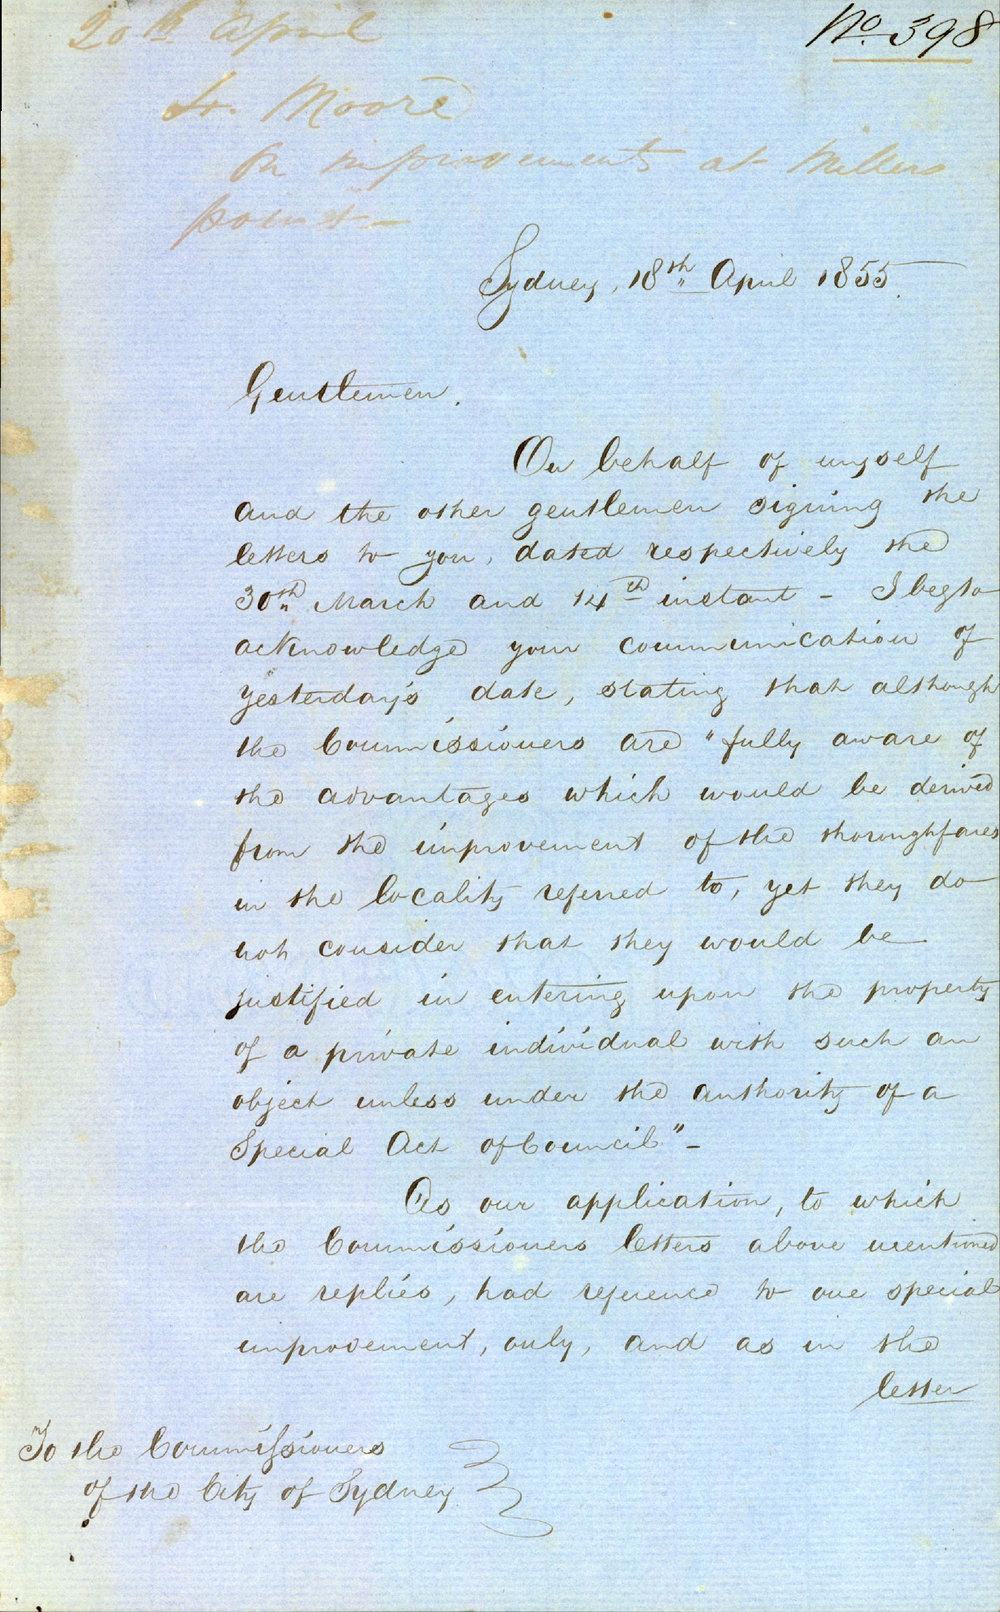 No. 398
20th April
H. Moore
On improvements at Millers
point—
Sydney, 18th April 1855.
Gentlemen.
On behalf of myself
and the other gentlemen signing the
letters to you, dated respectively the
30th March and 14th instant – I beg to
acknowledge your communication of
yesterday's date, stating that although
the Commissioners are "fully aware of
the advantages which would be derived
from the improvement of the thoroughfares
in the locality referred to, yet they do
not consider that they would be
justified in entering upon the property
of a private individual with such an
object unless under the authority of a
Special Act of Council" –
As our application, to which
the Commissioners letters above mentioned
are replies, had reference to one special
improvement, only, and as in the
letter
To the Commissioners
of the City of Sydney